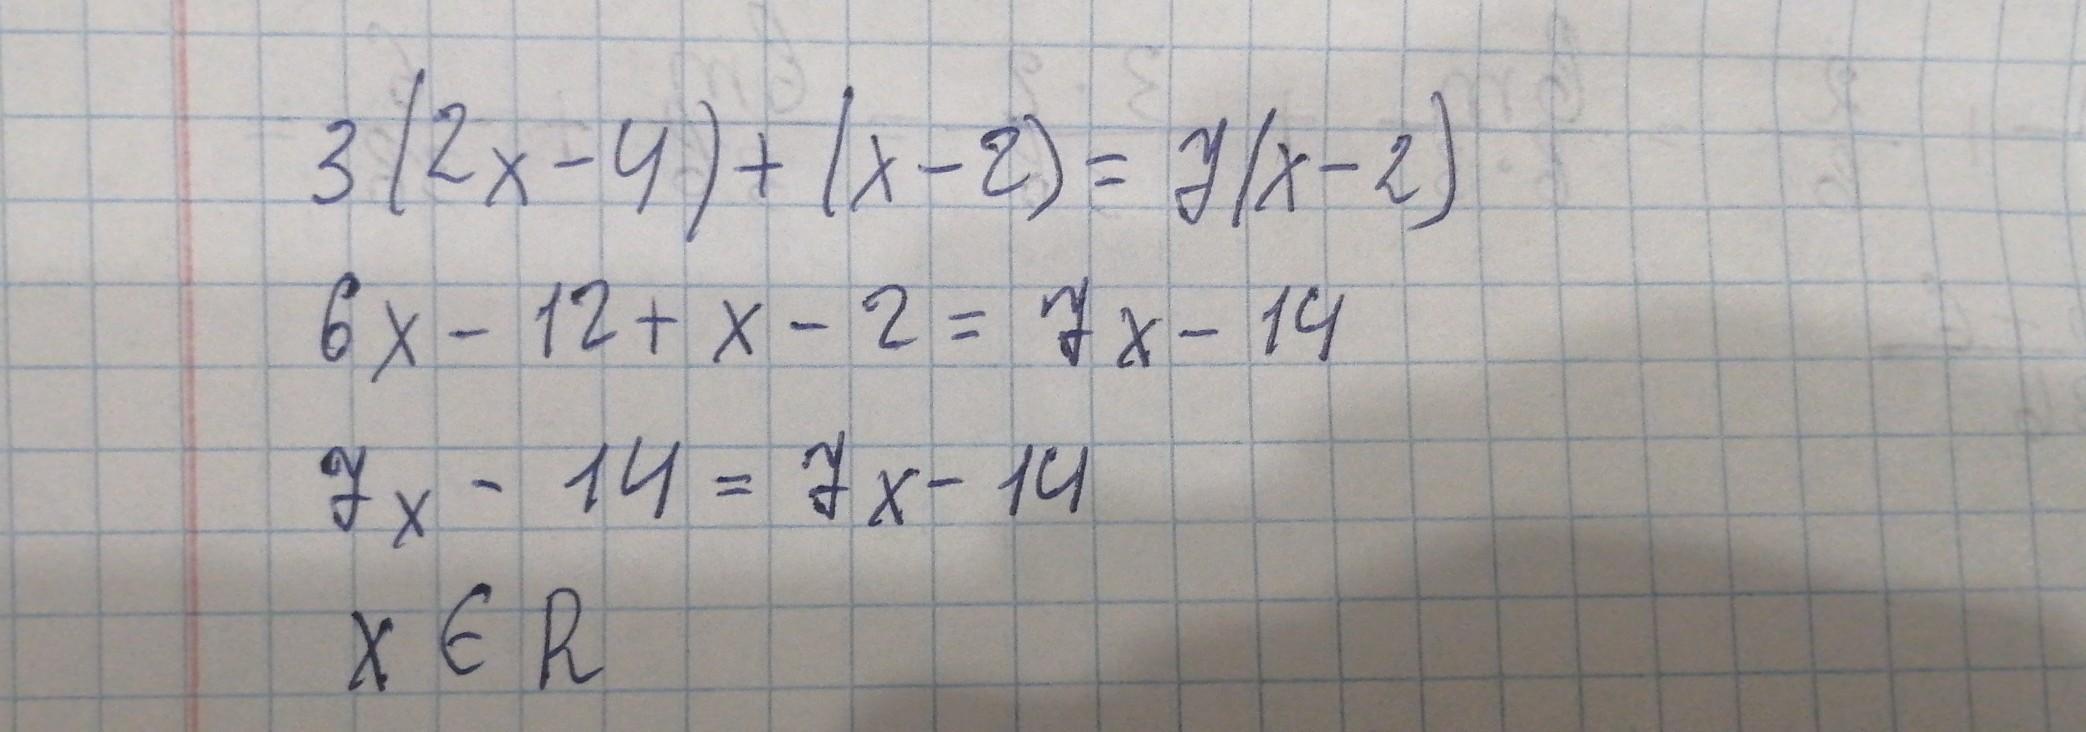 3(2x-4)+(x-2)=7(x-2)
6x-12+x-2=7x-14
7x-14=7x-14
x∈R